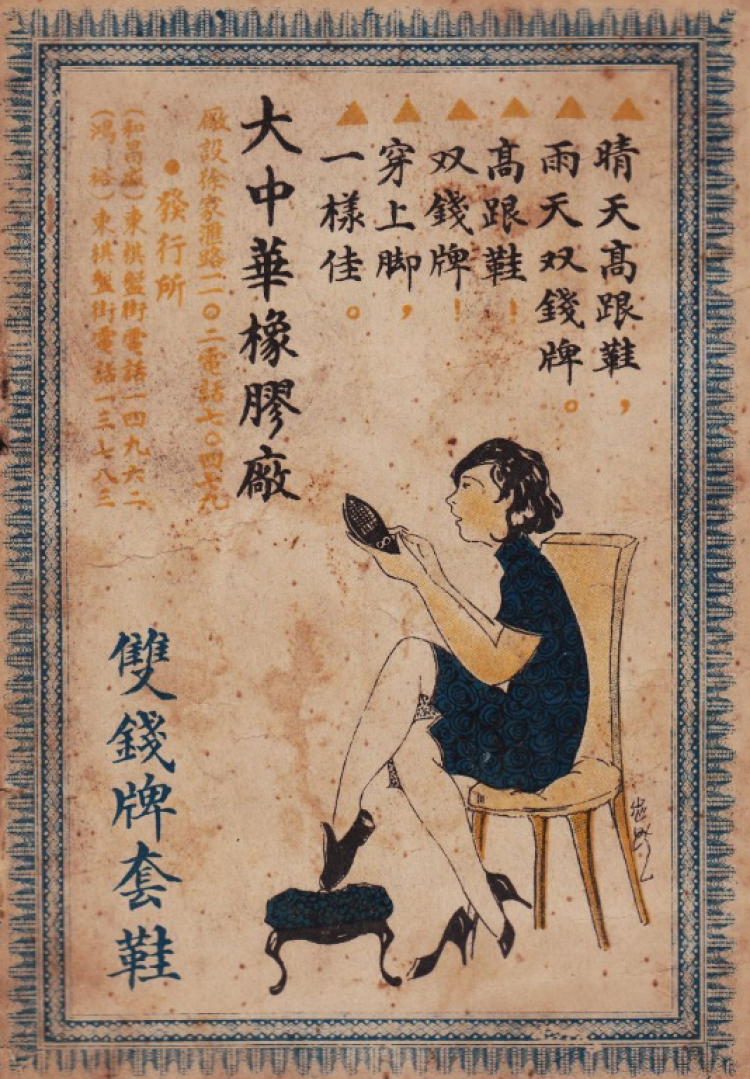 晴天高跟鞋，
雨天双錢牌。
高跟鞋！
双錢牌！
穿上脚，
一樣佳。
大中華橡膠廠
廠設徐家滙路一一〇二電話七〇四七九
●發行所
(和昌盛)東棋盤街電話一四九六二
(鴻裕)東棋盤街電話一三七八三
雙錢牌套鞋